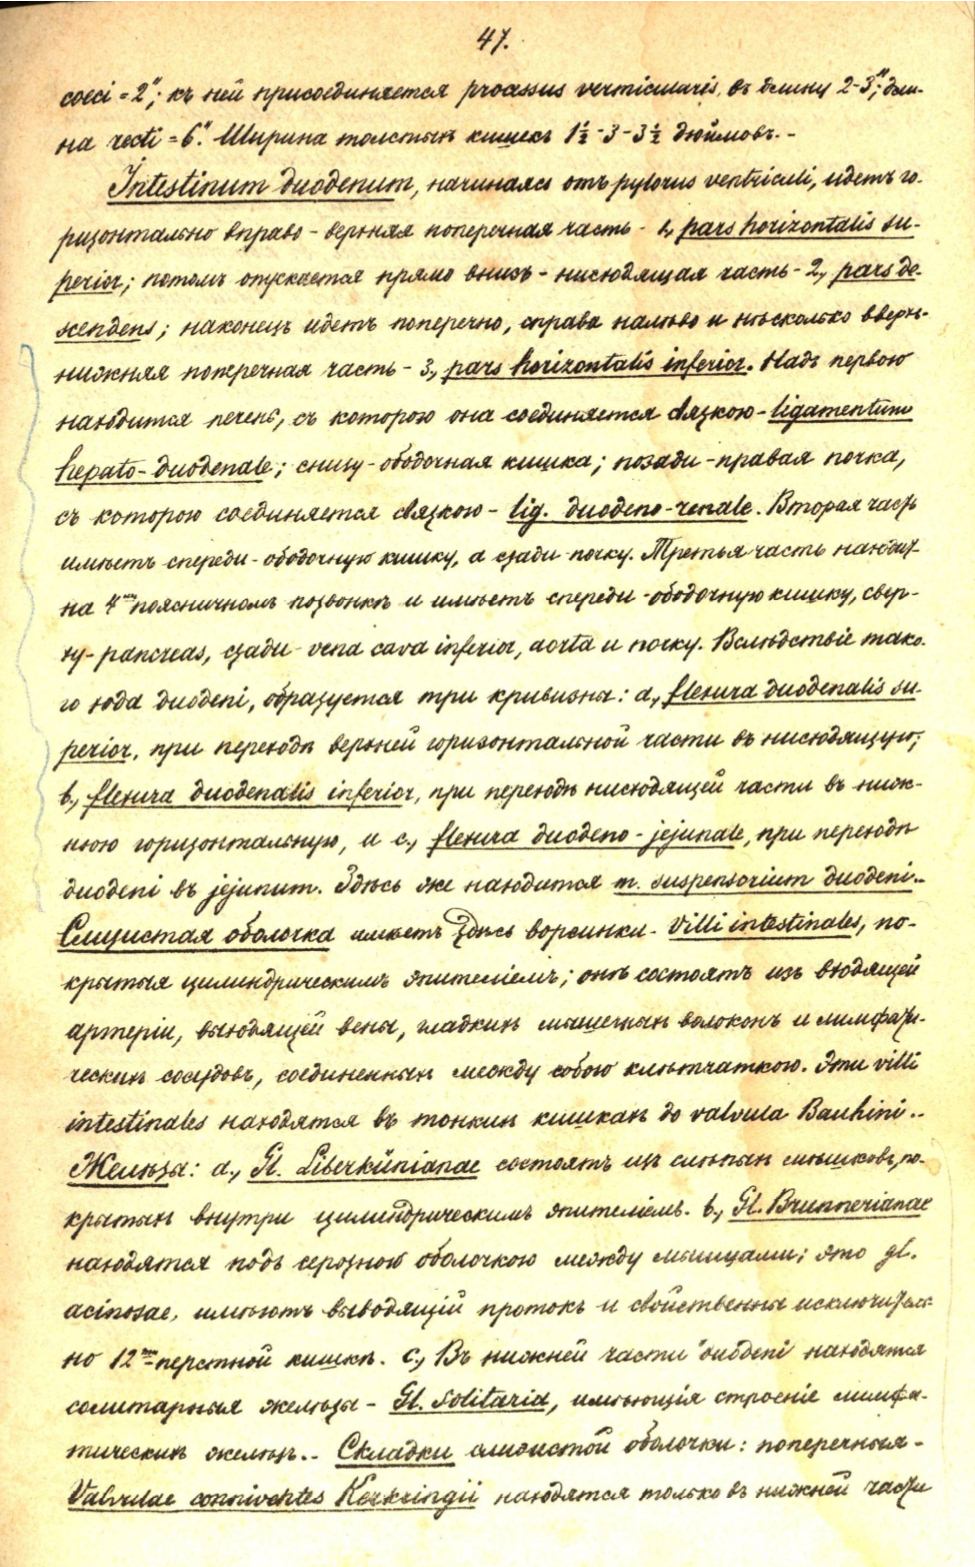 47.
coeci = 2"; къ ней присоединяется processus vermicularis, въ длину 2-3"; дли-
на recti = 6". Ширина толстыхъ кишекъ 1½ - 3 - 3½ дюймовъ. -
Intestinum duodenum, начинаясь отъ pylorus ventriculi, идетъ го-
ризонтально вправо - верхняя поперечная часть - 1, pars horizontalis su-
perior; потомъ опускается прямо внизъ - нисходящая часть - 2, pars de-
scendens; наконецъ идетъ поперечно, справа налѣво и нѣсколько вверхъ-
нижняя поперечная часть - 3, pars horizontalis inferior. Надъ первою
находится печень, съ которою она соединяется связкою - ligamentum
hepato-duodenale; снизу - ободочная кишка; позади - правая почка,
съ которою соединяется связкою - lig. duodeno-renale. Вторая часть
имѣетъ спереди - ободочную кишку, а сзади почку. Третья часть находит-
на 4омъ поясничномъ позвонкѣ и имѣетъ спереди - ободочную кишку, свер-
ху - pancreas, сзади - vena cava inferior, aorta и почку. Вслѣдствіе тако-
го хода duodeni, образуется три кривизны: a, flexura duodenalis su-
perior, при переходѣ верхней горизонтальной части въ нисходящую;
b, flexura duodenalis inferior, при переходѣ нисходящей части въ ниж-
нюю горизонтальную, и c, flexura duodeno-jejunale, при переходѣ
duodeni въ jejunum. Здѣсь же находится m. suspensorium duodeni..
Слизистая оболочка имѣетъ здѣсь ворсинки - Villi intestinales, по-
крытыя цилиндрическимъ эпителіемъ; онѣ состоятъ изъ входящей
артеріи, выходящей вены, гладкихъ мышечныхъ волоконъ и лимфати-
ческихъ сосудовъ, соединенныхъ между собою клѣтчаткою. Эти villi
intestinales находятся въ тонкихъ кишкахъ до valvula Bauhini..
Желѣзы: a, Gl. Liberkünianae состоятъ изъ слѣпыхъ мѣшковъ, по-
крытыхъ внутри цилиндрическимъ эпителіемъ. b, Gl. Brunnerianae
находятся подъ серозною оболочкою между мышцами; это gl.
acinosae, имѣютъ выводящій протокъ и свойственны исключитель-
но 12ти перстной кишкѣ. c, Въ нижней части duodeni находятся
солитарныя желѣзы - Gl. Solitaria, имѣющія строеніе лимфа-
тическихъ желѣзъ.. Складки слизистой оболочки: поперечныя -
Valvulae conniventes Kerkringii находятся только въ нижней части